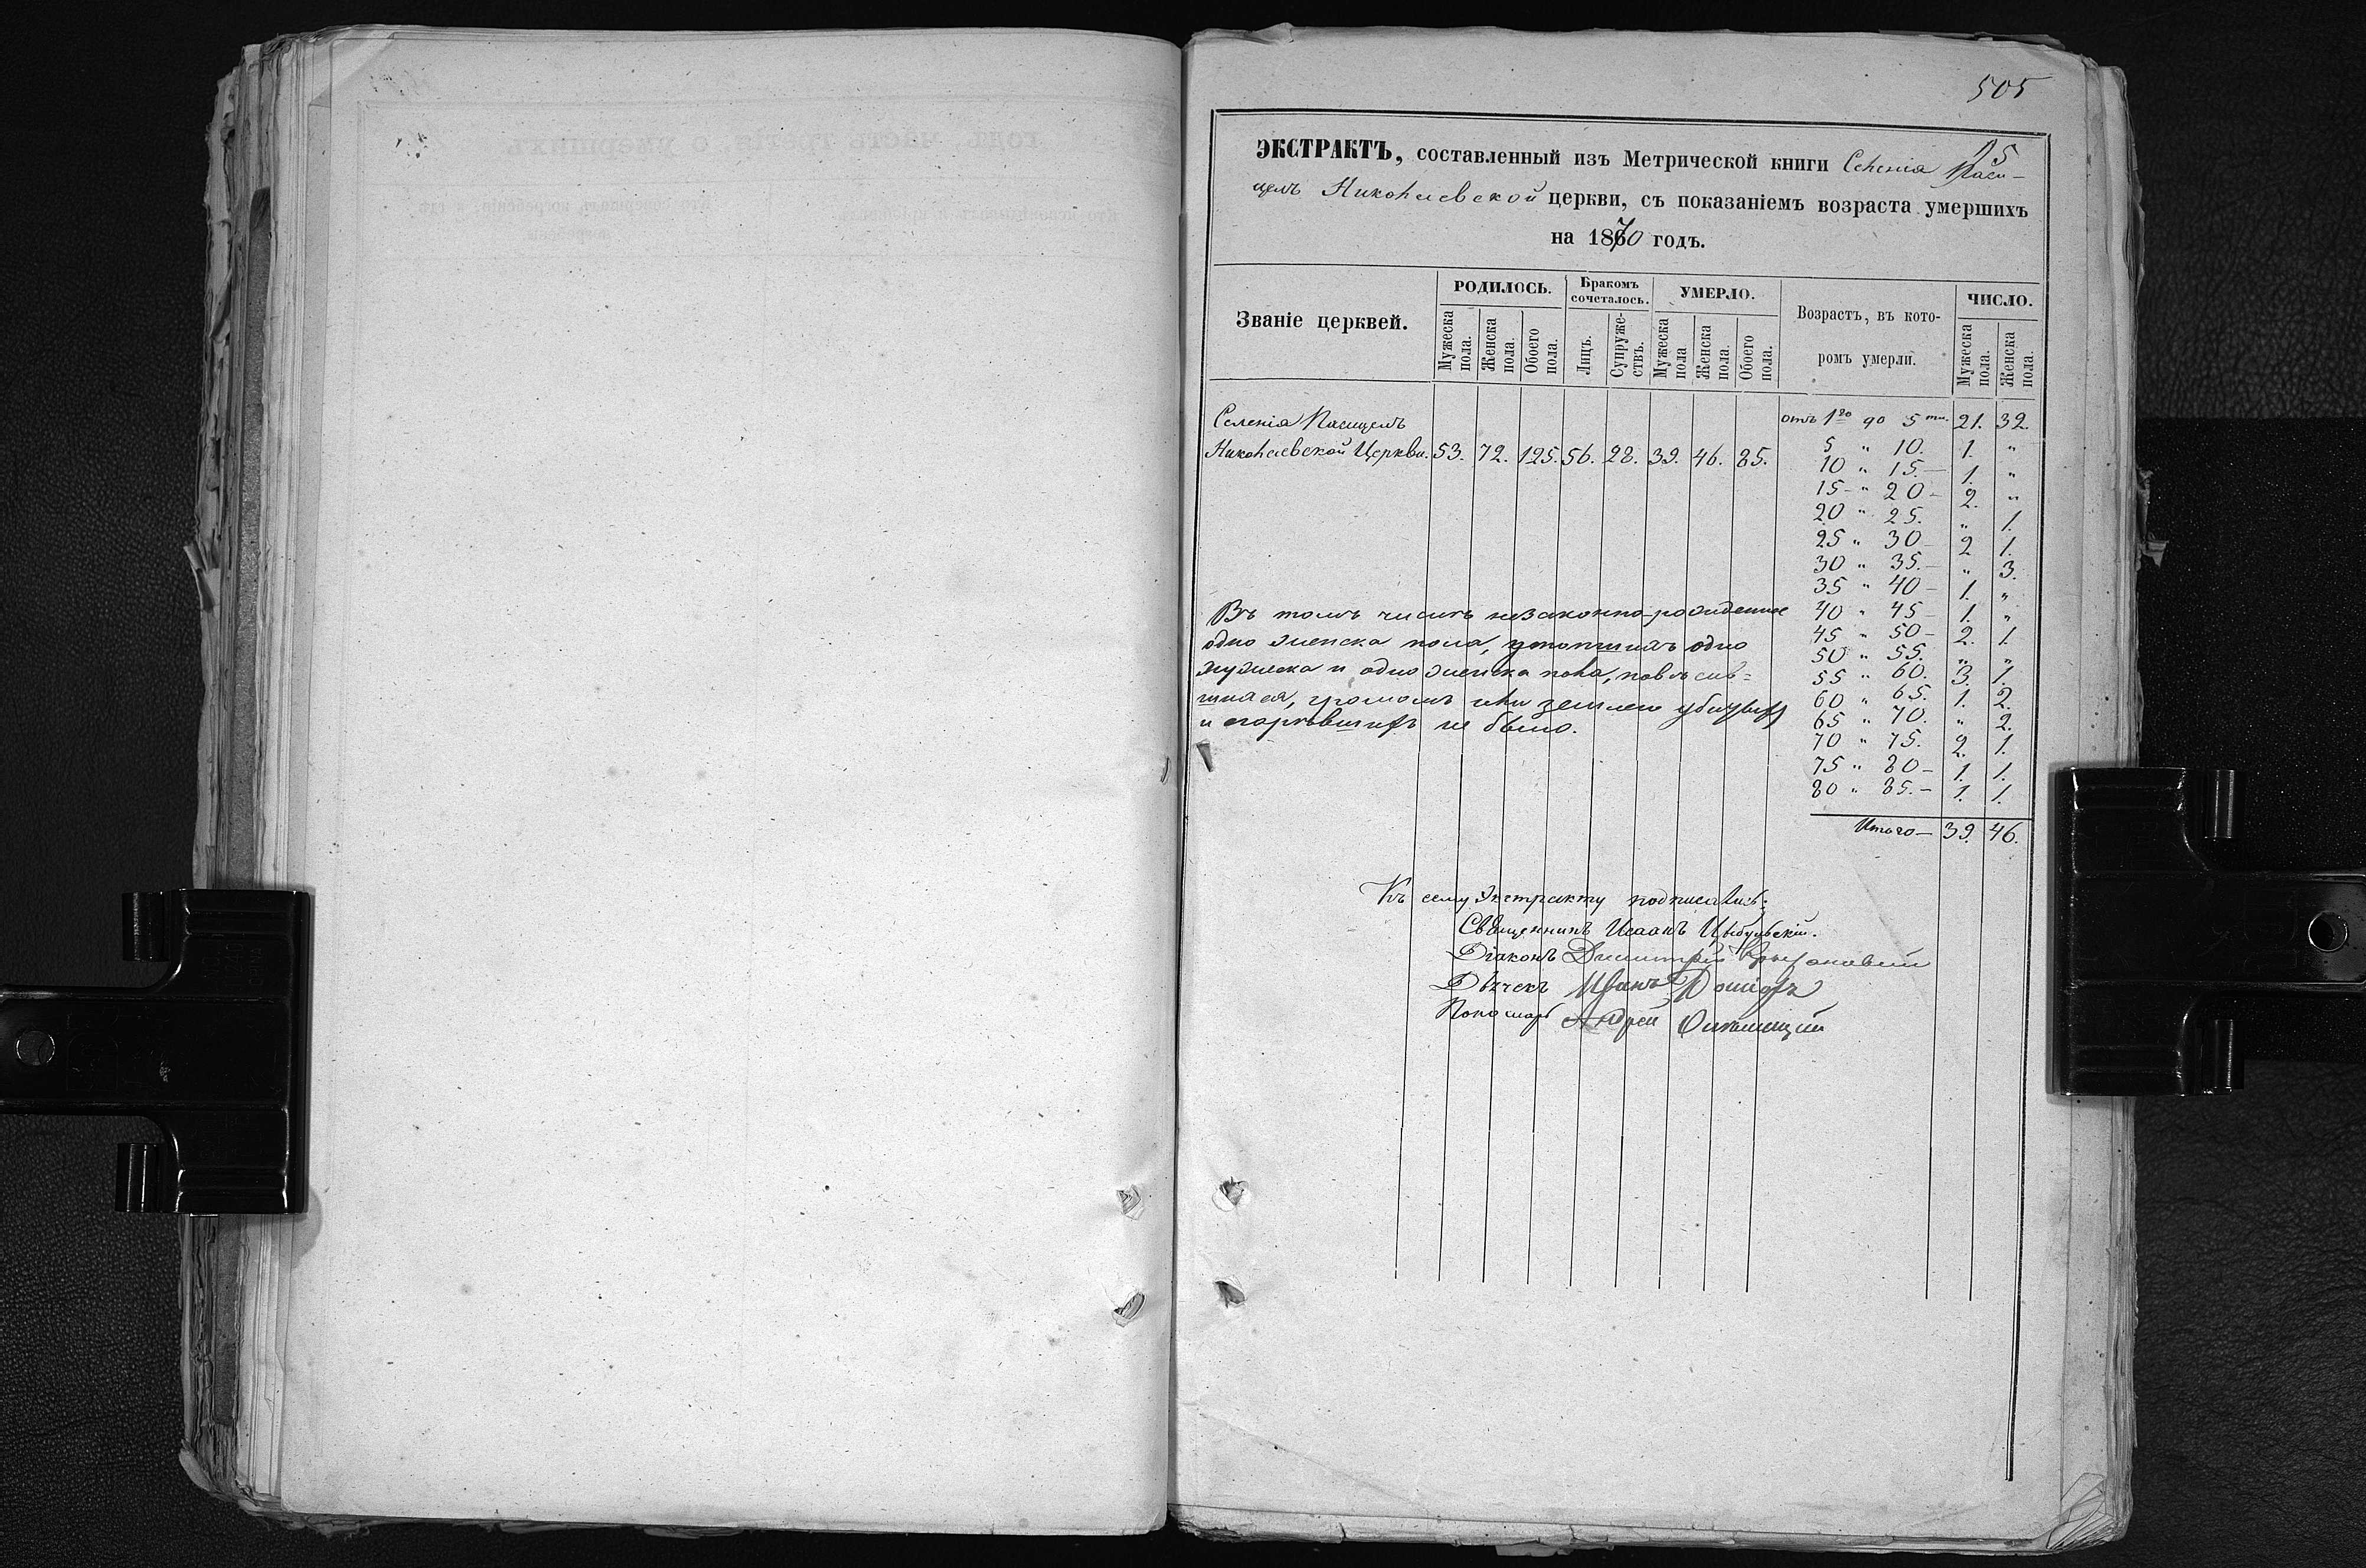 505
15
ЭКСТРАКТЪ, составленный изъ Метрической книги Селенія Паси-
целъ Николаевской церкви, съ показаніемъ возраста умершихъ
на 1870 годъ.
Званіе церквей. РОДИЛОСЬ. Бракомъ сочеталось. УМЕРЛО. Возрастъ, въ кото- ромъ умерли. ЧИСЛО.
Мужеска пола. Женска пола. Обоего пола. Лицъ. Супруже- ствъ. Мужеска пола Женска пола. Обоего пола. Мужеска пола. Женска пола.
Селенія Пасицелъ
Николаевской Церкви. 53. 72. 125. 56. 28. 39. 46. 85.
отъ 1го до 5ти. 21. 32.
5 " 10. 1. "
10 " 15. — 1. "
15 — " 20 — 2. "
20 " 25. " 1.
25 " 30 — 2 1.
30 " 35. — " 3.
35 " 40 — 1. "
40 " 45 — 1. "
45 " 50 — 2. 1.
50 " 55. " "
55 " 60. 3. 1.
60 " 65. 1. 2.
65 " 70. " 2.
70 " 75. 2. 1.
75 " 80 — 1. 1.
80 " 85. — 1. 1.
Итого — 39. 46.
Въ томъ числѣ незаконно-рожденное
одно женска пола, утопшихъ одно
мужеска и одно женска пола, повѣсив=
шихся, громомъ или землею убитыхъ
и сгорѣвшихъ не было.
Къ сему Экстракту подписались:
Священникъ Исаакъ
Діаконъ Димитрій
Дьячекъ Иванъ
Пономарь Андрей